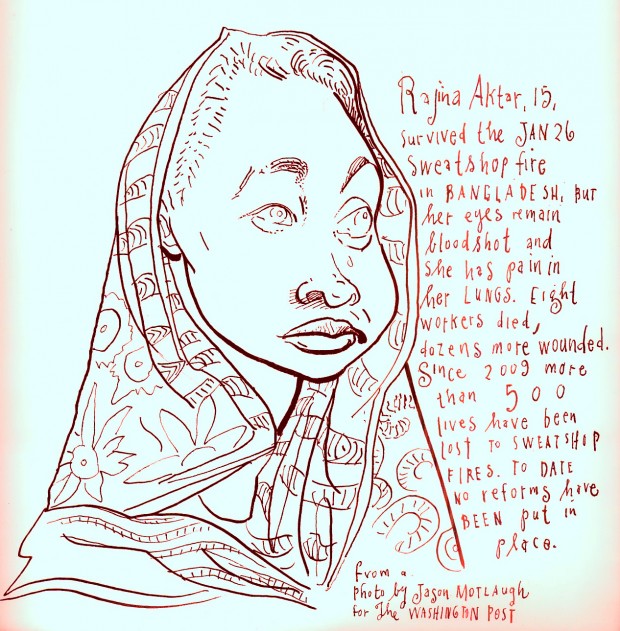 Rajina Aktar, 15,
survived the JAN 26
sweatshop fire
in BANGLADESH, BUT
her eyes remain
bloodshot and
she has pain in
her LUNGS. Eight
workers died,
dozens more wounded.
Since 2009 more
than 500
lives have been
lost to SWEATSHOP
FIRES. TO DATE
NO reforms have
BEEN put in
place.
From a
photo by Jason MOTLAUGH
for The WASHINGTON POST